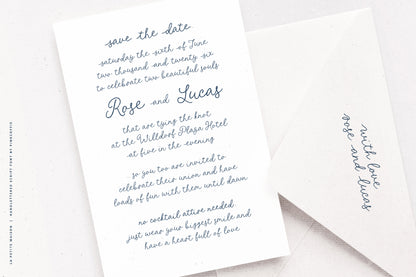 save the date
saturday the sixth of June
two thousand and twenty six
to celebrate two beautiful souls
Rose and Lucas
that are tying the knot
at the Willdorf Plaza Hotel
at five in the evening
so you too are invited to
celebrate their union and have
loads of fun with them until dawn
no cocktail attire needed
just wear your biggest smile and
have a heart full of love
with love
rose and lucas
LA PETITE MAISON | HANDLETTERED SCRIPT FONT BY